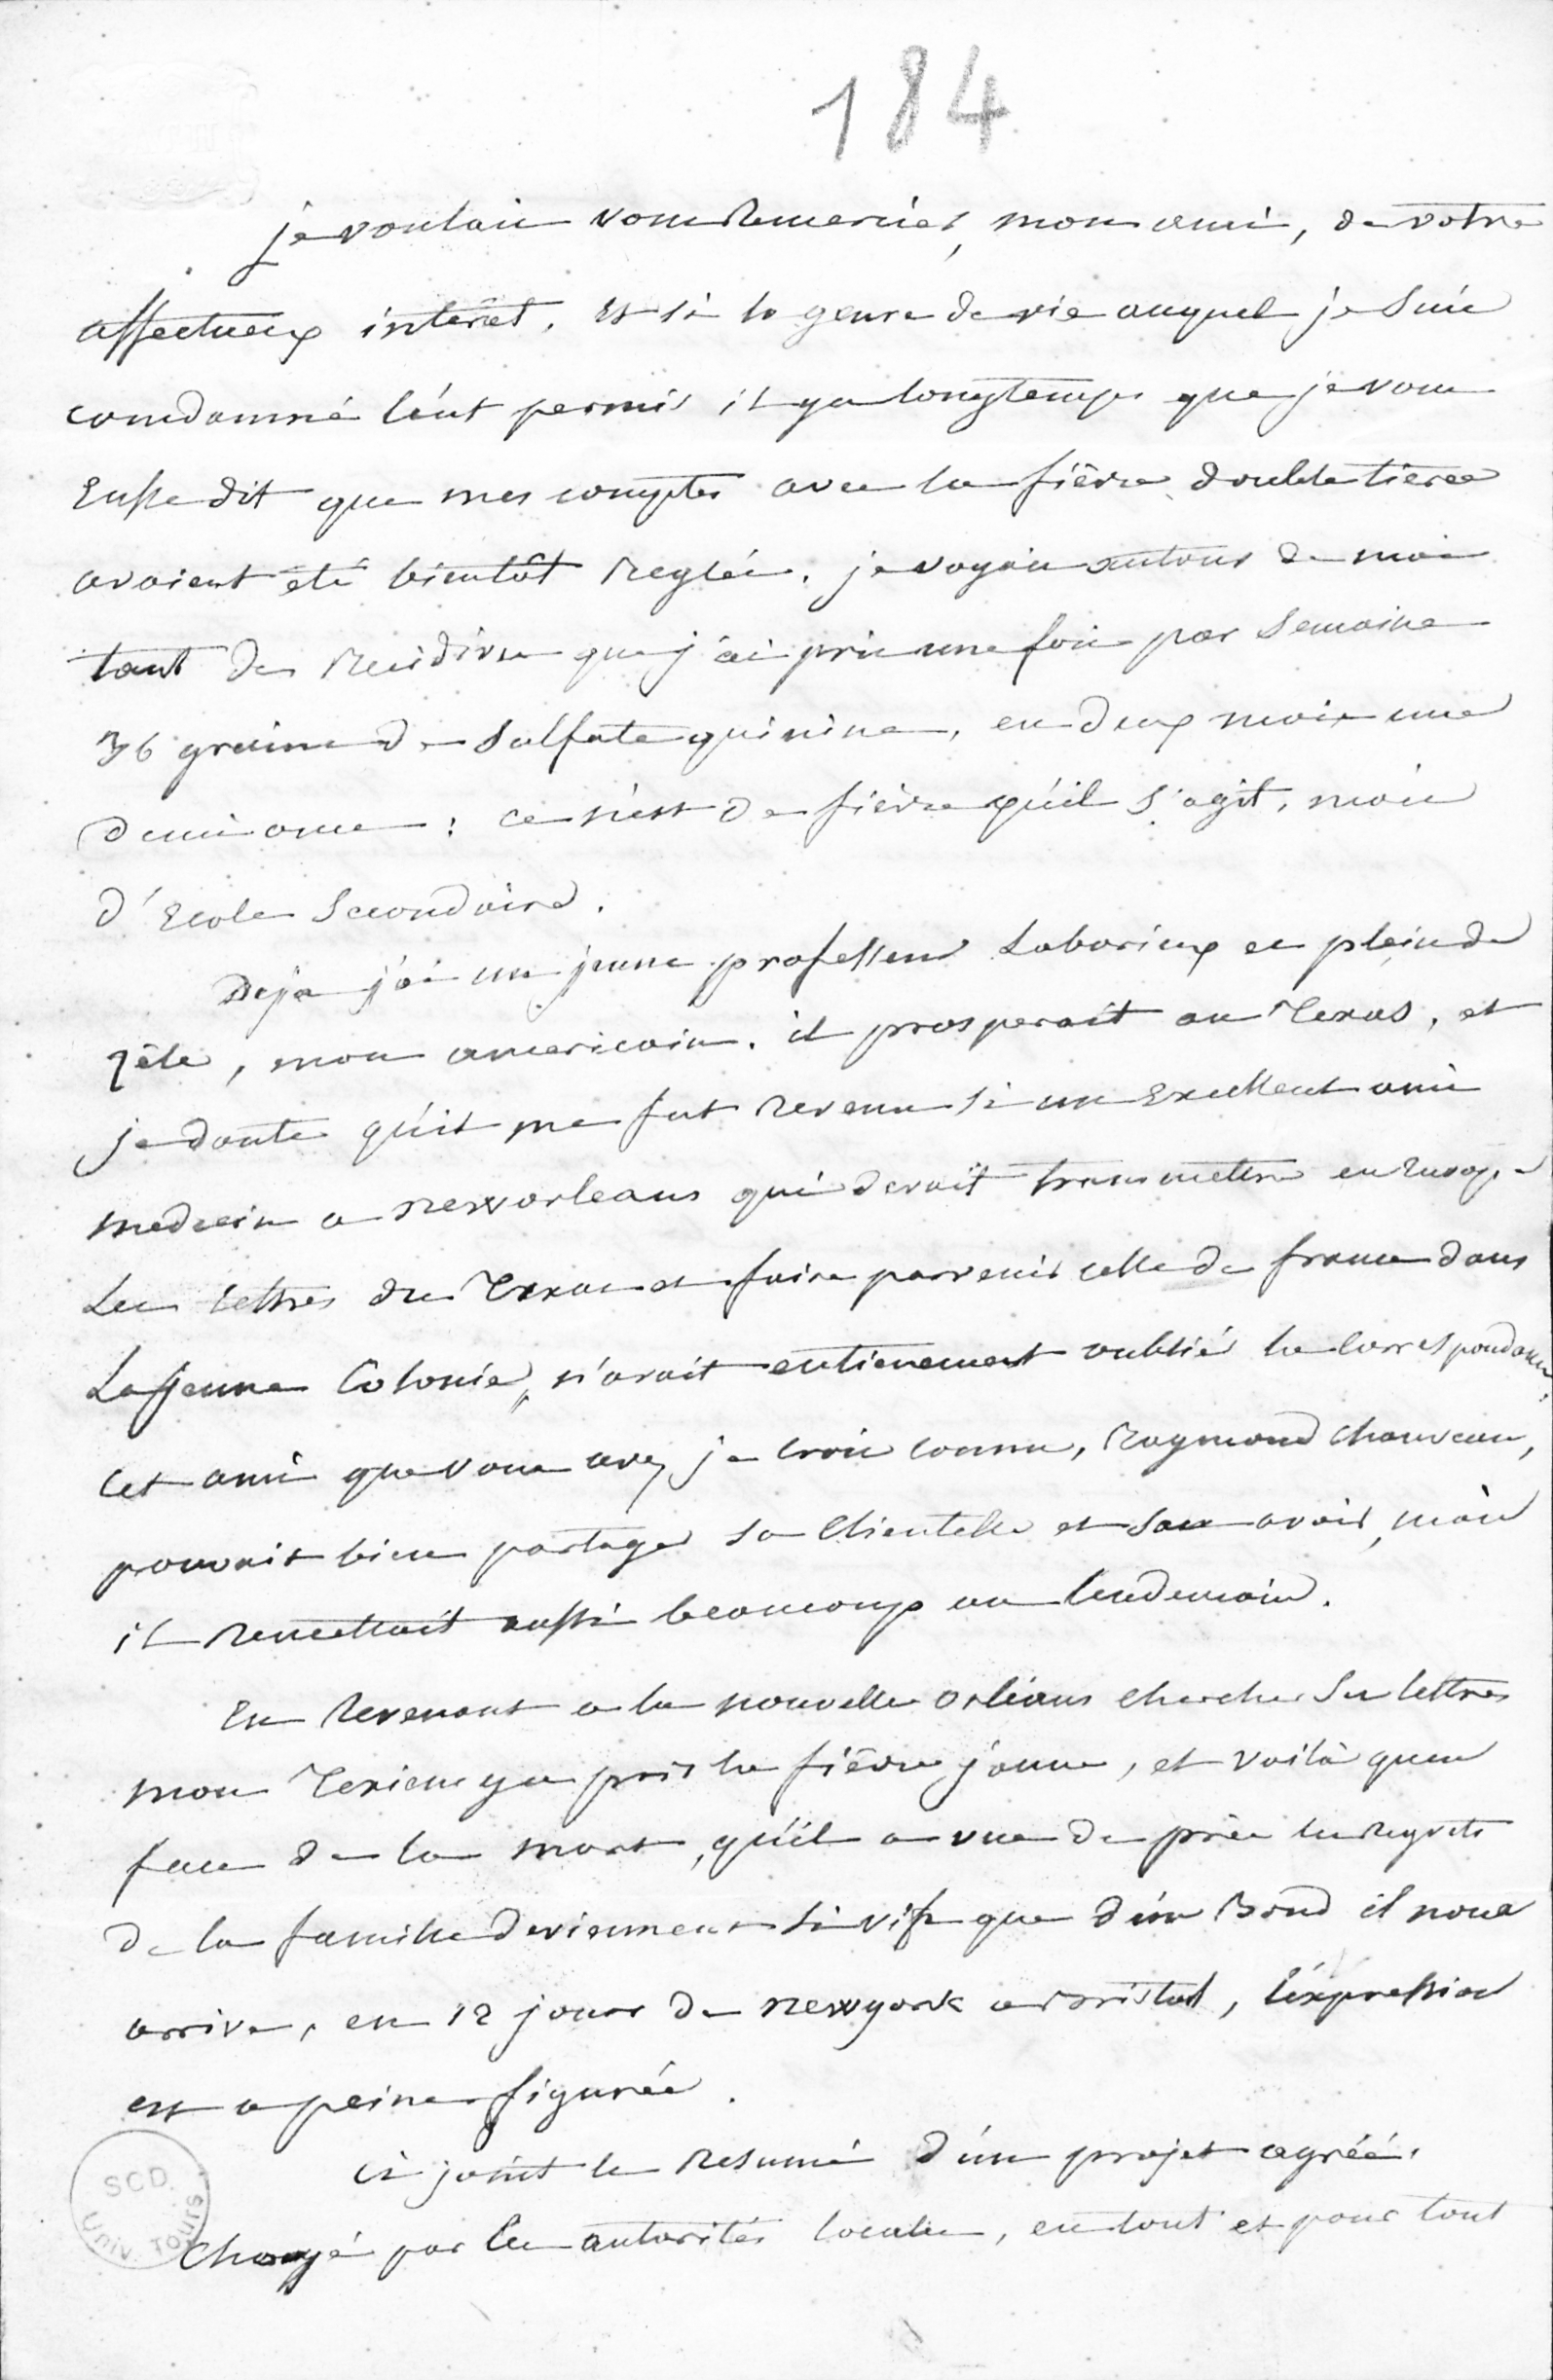 184
je voulais vous remercier, mon ami, de votre
affectueux intérêt. et si le genre de vie auquel je suis
comdamné l'eut permis il y a longtemps que je vous
Eusse dit que mes comptes avec la fièvre double tierce
avaient été bientôt reglés. je voyais autour de moi
tant de recidives que j'ai pris une fois par semaine
36 grains de sulfate quinine, en deux mois une
demi once : ce n'est de fièvre qu'il s'agit, mais
d'Ecole Secondaire.
Deja j'ai un jeune professeur Laborieux et plein de
zèle, mon americain. il prosperait au Texas, et
je doute qu'il me fut revenu si un Excellent ami
medecin a neworleans qui devait transmettre en Europe
Les lettres du Texas et faire parvenir celles de france dans
La jeune Colonie, n'avait entierement oublié la correspondance.
Cet ami que vous avez je crois connu, Raymond Chauveau,
pouvait bien partager sa Clientelle et son avoir, mais
il remettait aussi beaucoup au lendemain.
En Revenant a la nouvelle Orléans chercher ses lettres
mon Texien y a pris la fièvre jaune, et voilà qu'en
face de la mort, qu'il a vue de près les regrets
de la famille deviennent si vifs que d'un Bond il nous
arrive, en 12 jours de newyork a Bristol, l'expression
est a peine figurée.
ci joint le resumé d'un projet agréé.
Chargé par les autorités locales, en tout et pour tout
SCD.
Univ. TOURS